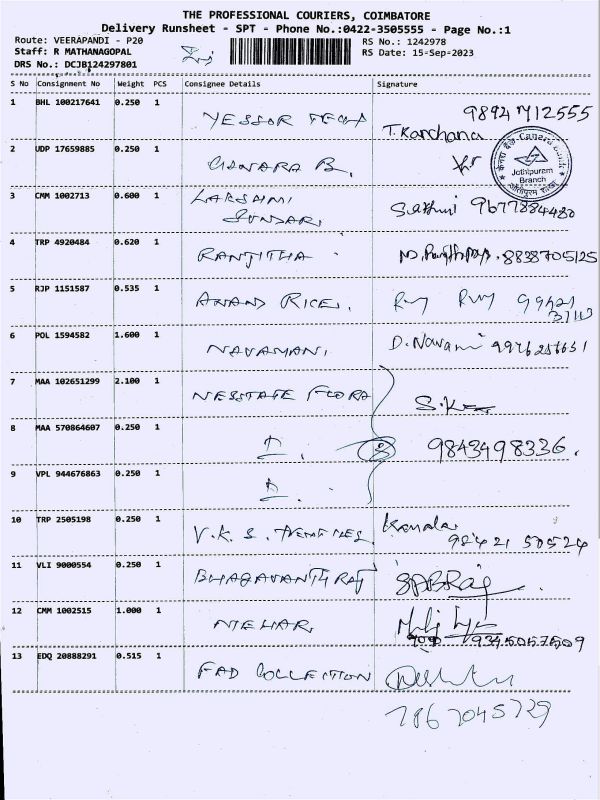 THE PROFESSIONAL COURIERS, COIMBATORE
Delivery Runsheet - SPT - Phone No.:0422-3505555 - Page No.:1
Route: VEERAPANDI - P20
Staff: R MATHANAGOPAL
DRS No.: DCJB124297801
RS No.: 1242978
RS Date: 15-Sep-2023
S No Consignment No Weight PCS Consignee Details Signature
1 BHL 100217641 0.250 1 98947 12555
T. Kanchana
2 UDP 17659885 0.250 1 CANARA B,
केनरा बैंक Canara Bank
Jothipuram
Branch
3 CMM 1002713 0.600 1 LAKSHMI
SUNDARI 9677884480
4 TRP 4920484 0.620 1 RANJITHA 8838705125
5 RJP 1151587 0.535 1 ANAND RICE,
6 POL 1594582 1.600 1 NAVAMANI, D. Navami
7 MAA 102651299 2.100 1 FLORA
8 MAA 570864607 0.250 1 9843498336.
9 VPL 944676863 0.250 1
10 TRP 2505198 0.250 1 V.K.S. Kamala
98421 50524
11 VLI 9000554 0.250 1 BHAGAVANTH RAJ
12 CMM 1002515 1.000 1 NIEHAR,
9345057509
13 EDQ 20888291 0.515 1 FAD COLLECTION
7867045729